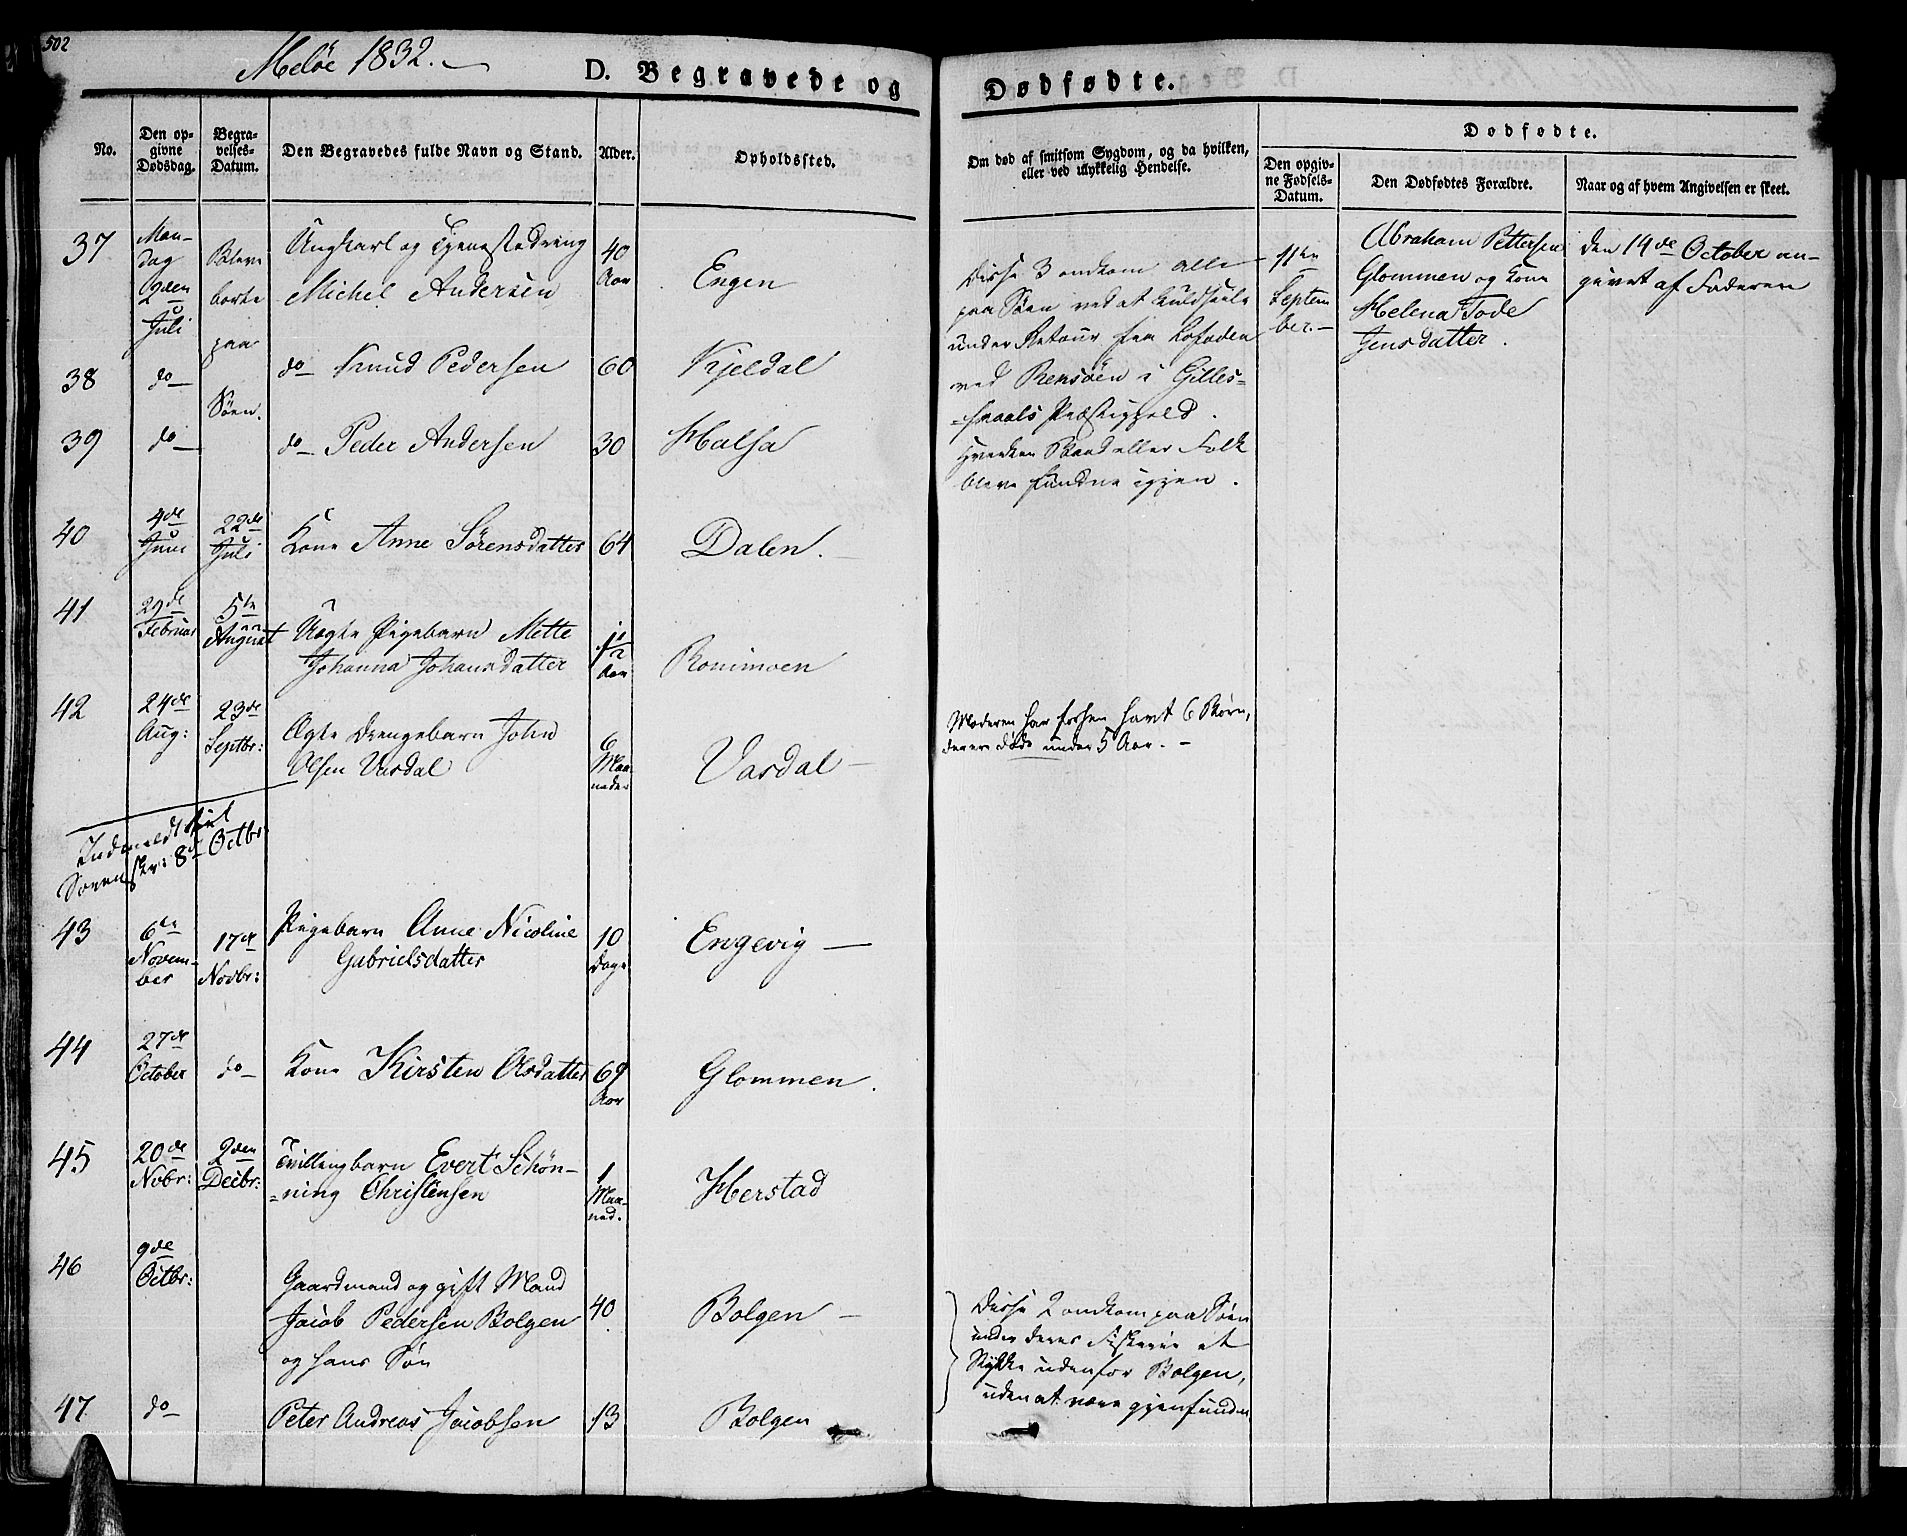 502
Meløe 1832.
D. Begravede og
Dødfødte.
No.
Den op-
givne
Dødsdag.
Begra-
velses-
Datum.
Den Begravedes fulde Navn og Stand.
Alder.
Opholdssted.
Om død af smitsom Sygdom, og da hvilken,
eller ved ulykkelig Hendelse.
Dødfødte.
Den opgiv-
ne Fødsels-
Datum.
Den Dødfødtes Forældre.
Naar og af hvem Angivelsen er skeet.
37
Man-
dag
2den
Juli
Bleve
borte
paa
Søen.
Ungkarl og Tjenestedreng
Michel Andersen
40
Aar
Engen
38
do
do Knud Pedersen
60
Kjeldal
39
do
do Peder Andersen
30
Halsa
Disse 3 omkom alle
paa Søen ved at kuldseile
under Retour fra Lofoden
ved Rensøen i Gilles-
=kaals Præstegjeld.
Hverken Baad eller Folk
bleve fundne igjen.
11te
Septem
ber.
Abraham Pettersen
Glommen og Kone
Helena Tode
Jensdatter.
den 14de October an-
givet af Faderen
40
4de
Juni
22de
Juli
Kone Anne Sørensdatter
64
Dalen.
41
29de
Februar
5te
August
Uægte Pigebarn Mette
Johanna Johansdatter
1/2
Aar
42
24de
Aug:
23de
Septbr:
Ægte Drengebarn John
Olsen Vasdal
6
Maa
neder
Vasdal
Moderen har forhen havt 6 Børn,
døde under 5 Aar.
Indmeldt til
Sorenskr: 8de Octbr
43
6te
Novem-
ber
17de
Novbr:
Pigebarn Anne Nicoline
Gabrielsdatter
10
Dage
Engevig
44
27de
October
do
Kone Kirsten Olsdatter
69
Aar
Glommen.
45
20de
Nobr:
2den
Decbr:
Tvillingbarn Evert Schøn-
=ning Christensen
1
Maa-
ned.
Herstad
46
9de
Octbr:
Gaardmand og gift Mand
Jacob Pedersen Bolgen
og hans Søn
40
Bolgen
47
do
Peter Andreas Jacobsen
13
Bolgen
Disse 2 omkom paa Søen
under deres Fiskerie et
Stykke udenfor Bolgen,
uden at være gjenfunden